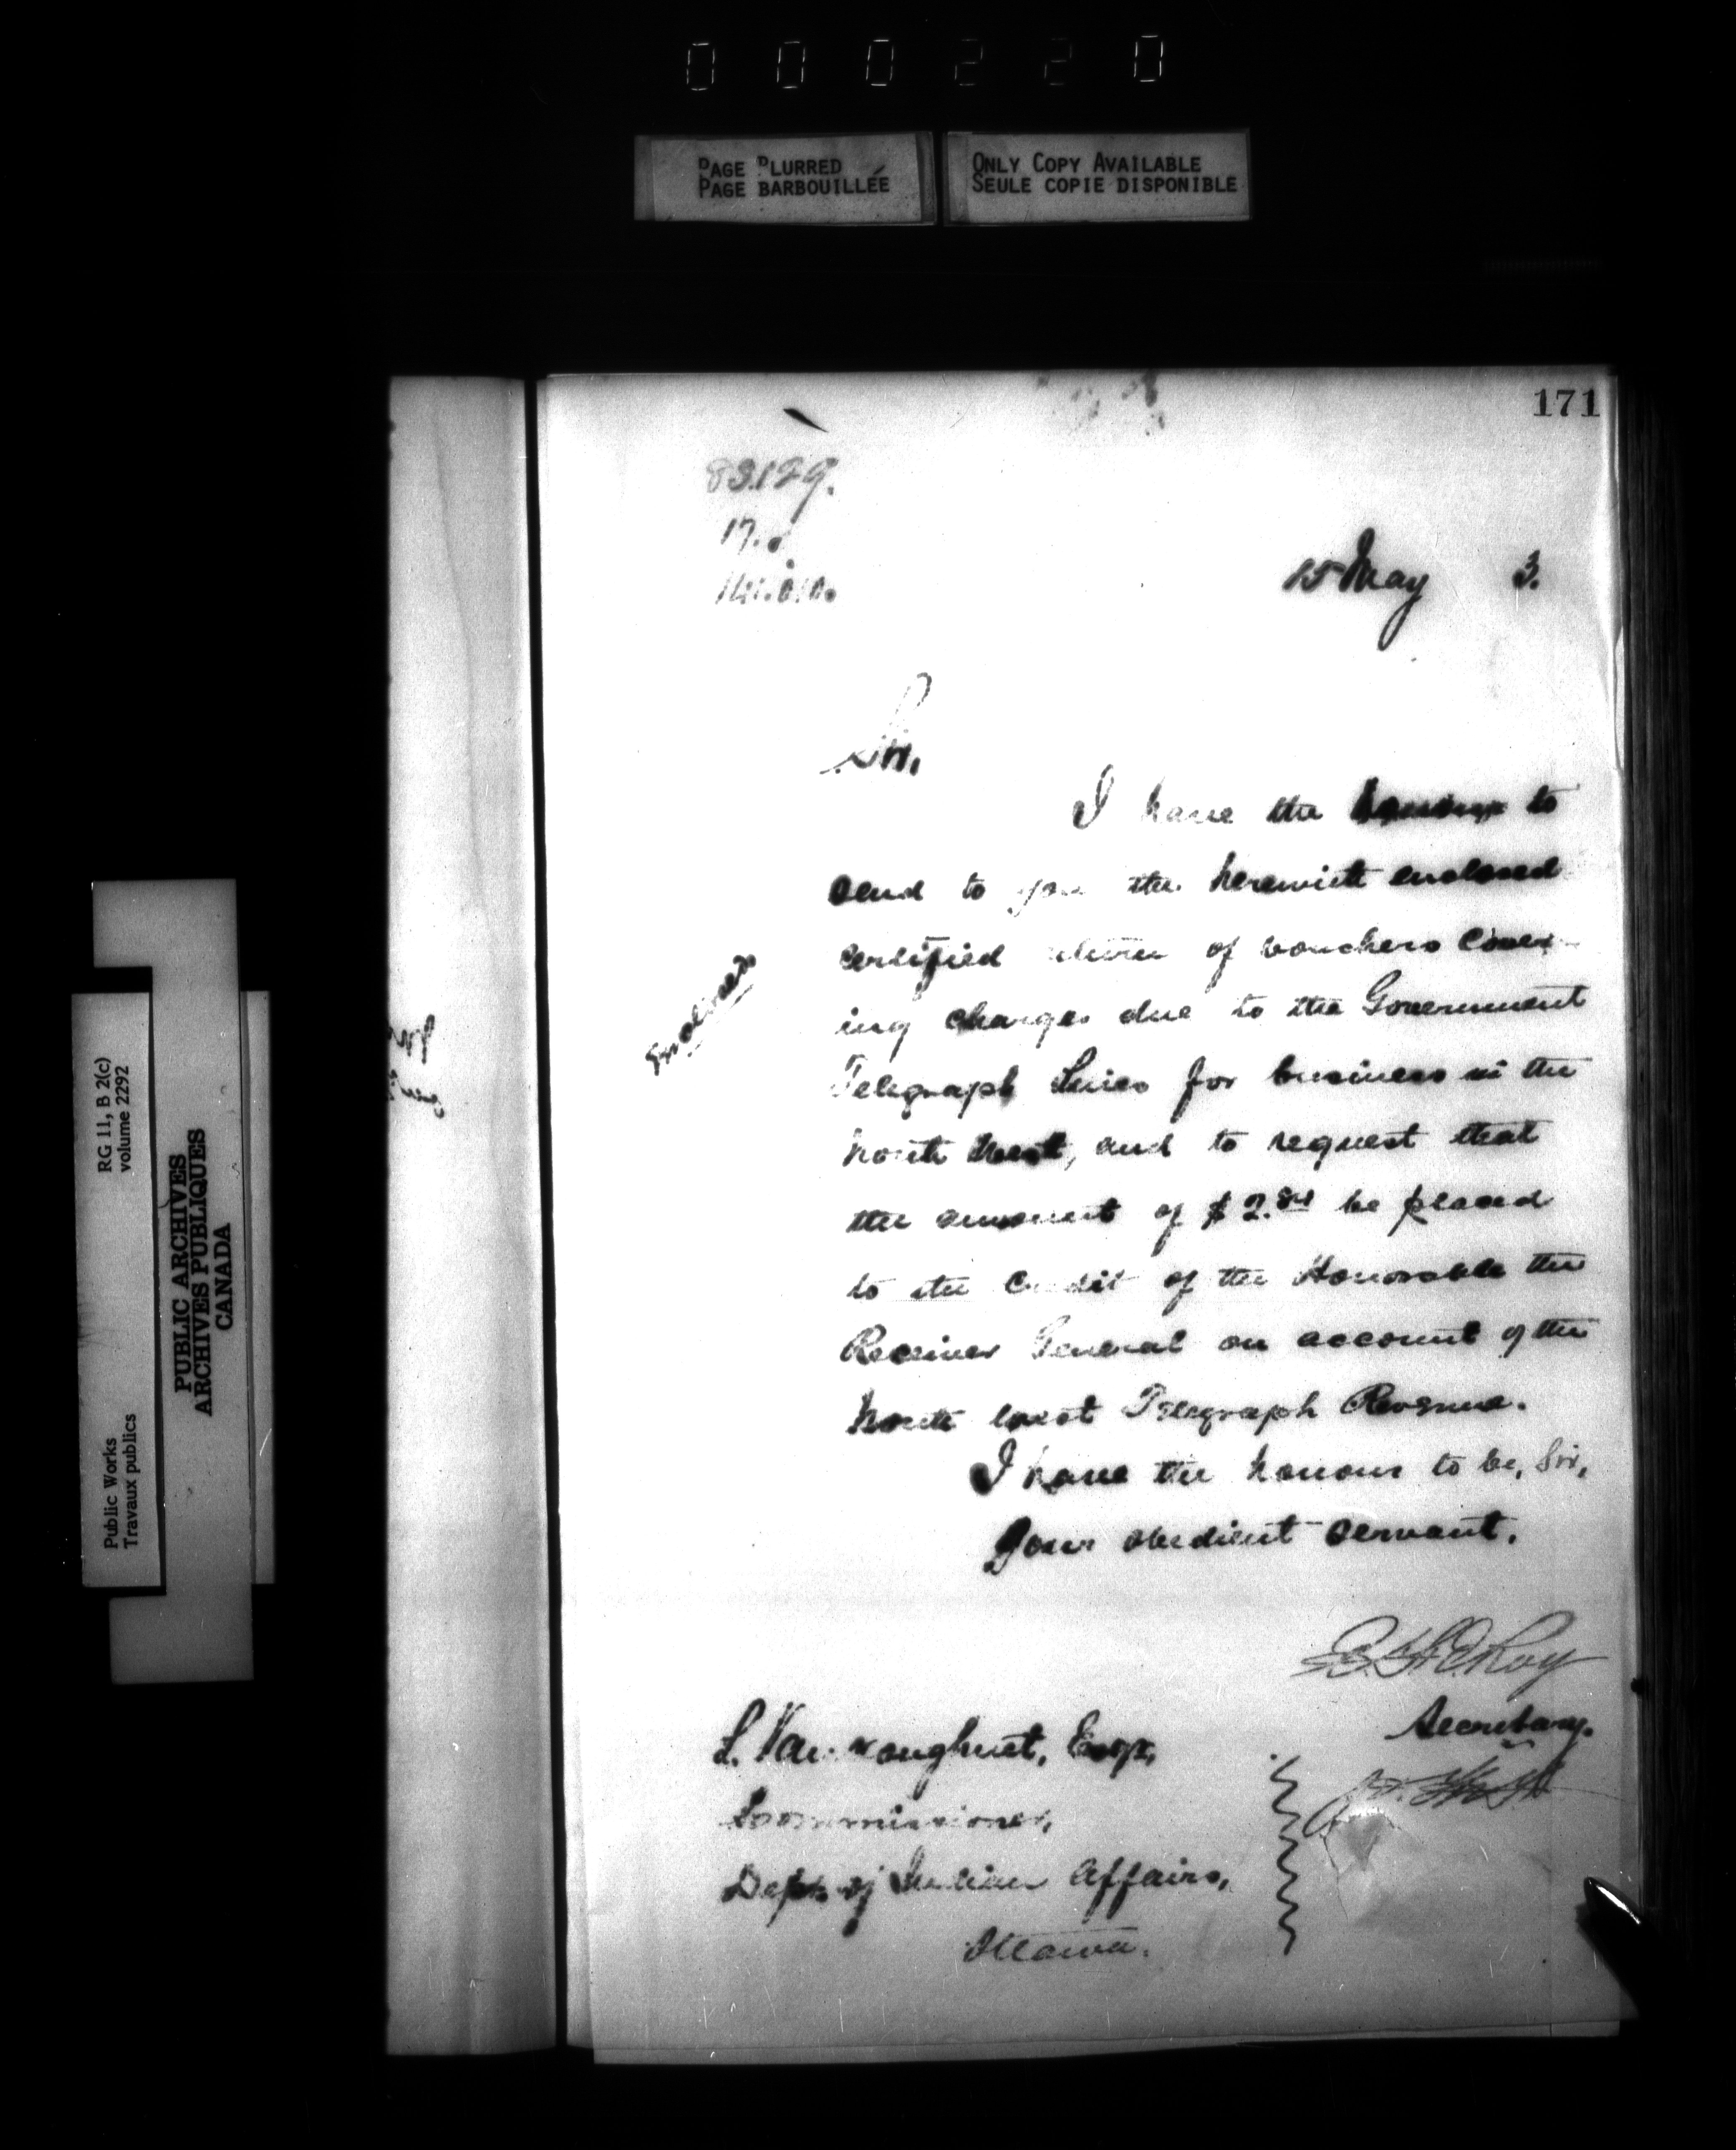 000220
PAGE BLURRED
PAGE BARBOUILLÉE
ONLY COPY AVAILABLE
SEULE COPIE DISPONIBLE
171
83129.
17.
15 May 3.
Sir,
I have the honour to
send to you the herewith enclosed
certified return of vouchers cover-
ing charges due to the Government
Telegraph Lines for business in the
North West, and to request that
the amount of $2.84 be placed
to the credit of the Honorable the
Receiver General on account of the
North West Telegraph Revenue.
I have the honour to be, Sir,
Your obedient servant,
Secretary.
L. Vankoughnet, Esqr,
Commissioner,
Dept. of Indian Affairs,
Ottawa.
RG 11, B 2(c)
volume 2292
PUBLIC ARCHIVES
ARCHIVES PUBLIQUES
CANADA
Public Works
Travaux publics